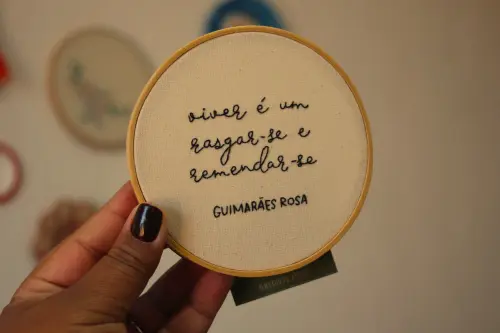 viver é um
rasgar-se e
remendar-se
GUIMARÃES ROSA